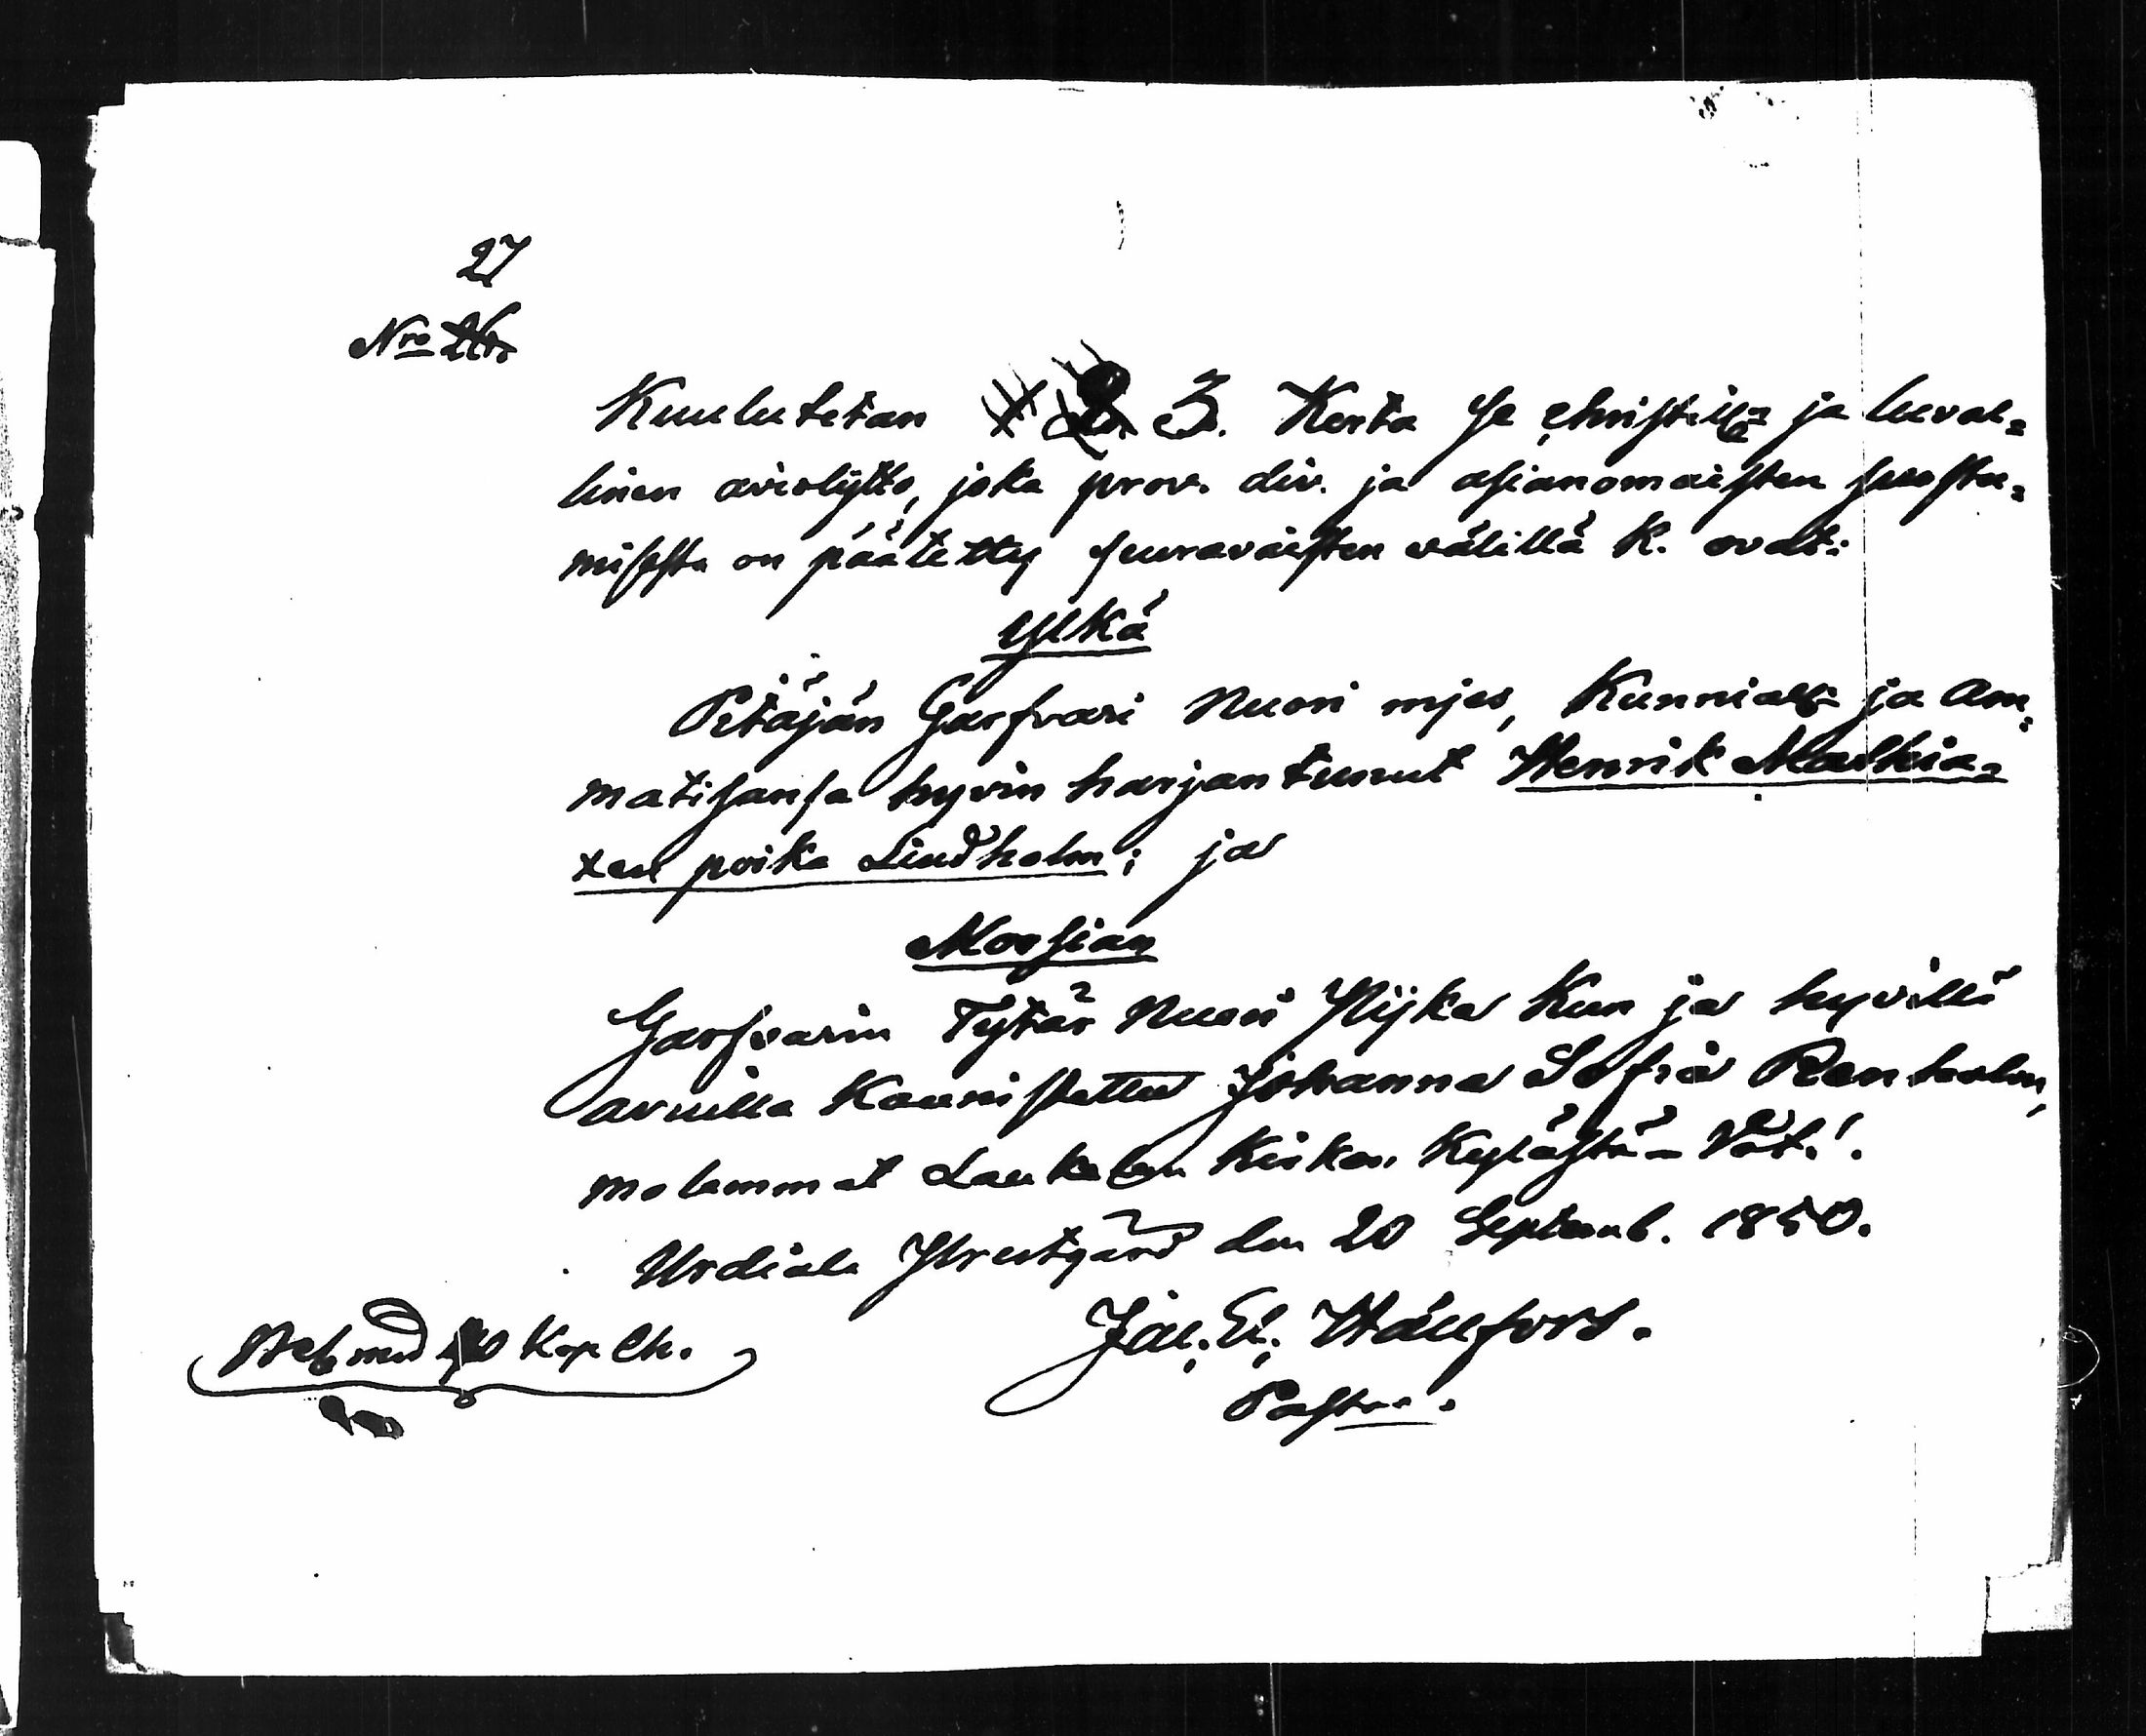 27
Nro
Kuulutetan 3. Kerta se christill= ja luval=
linen avioliitto, joka prov. div. ja asianomaisten suostu=
misesta on päätetty seuravaisten välillä k. ovat:
Ylkä
Petäjän Garfvari Nuori mjes, Kunniall= ja Am=
matisansa hyvin harjantunut Henrik Mathia=
xen poika Lindholm; ja
Morsian
Garfvarin Tytär Nuori Pijka Kun ja hyvillä
avuilla Kaunistettu Johanna Sofia Renholm,
molemmat Laukelan Kylästä -
Urdiala Prestgård den 20 Septemb. 1850.
Hällfors.
Pastor.